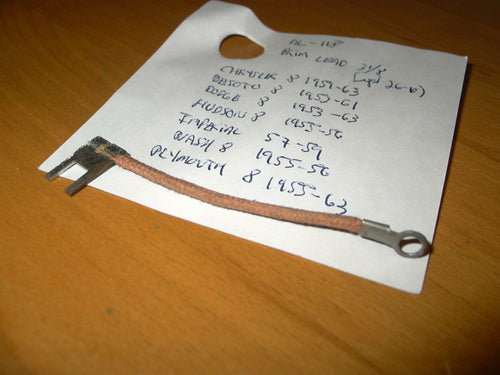 AL-118
PRIM LEAD 3 1/8
CHRYSLER 8 1951-63
DESOTO 8 1953-61
DODGE 8 1953-63
HUDSON 8 1955-56
IMPERIAL 57-59
NASH 8 1955-56
PLYMOUTH 8 1955-63